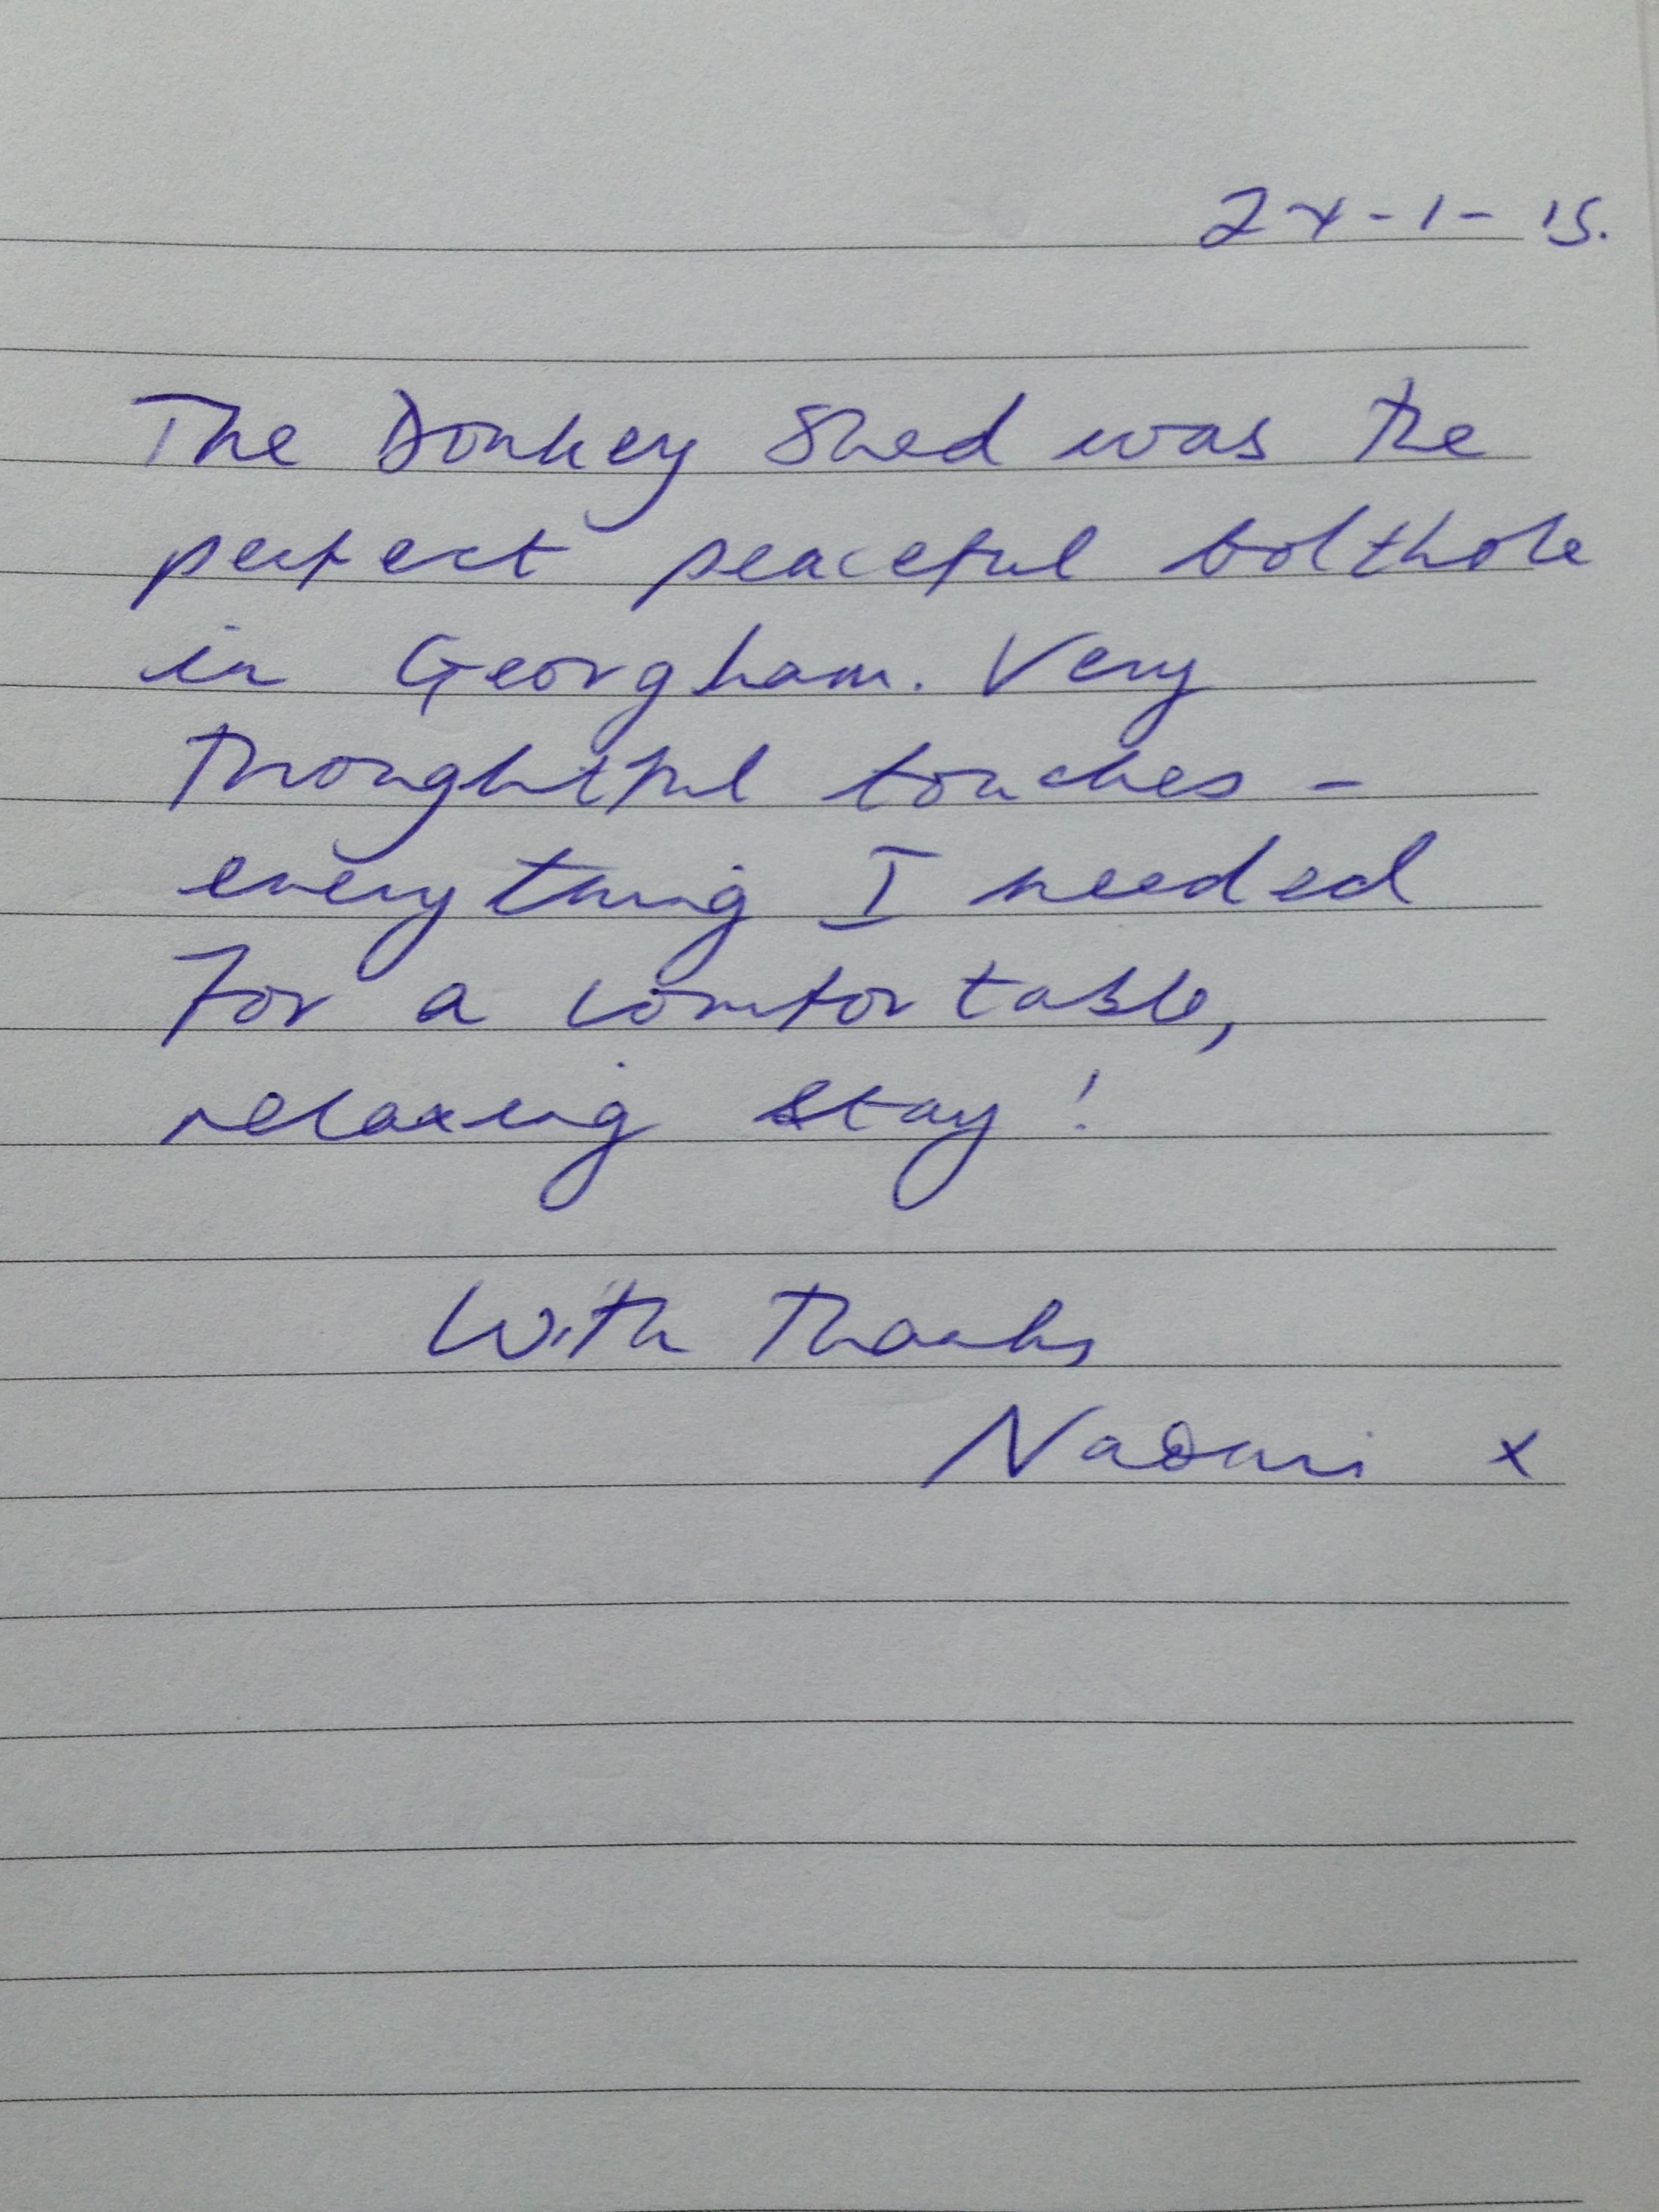 24-1-15.
The Donkey Shed was the
perfect peaceful bolthole
in Georgham. Very
thoughtful touches -
everything I needed
for a comfortable,
relaxing stay!
With thanks
Naomi x